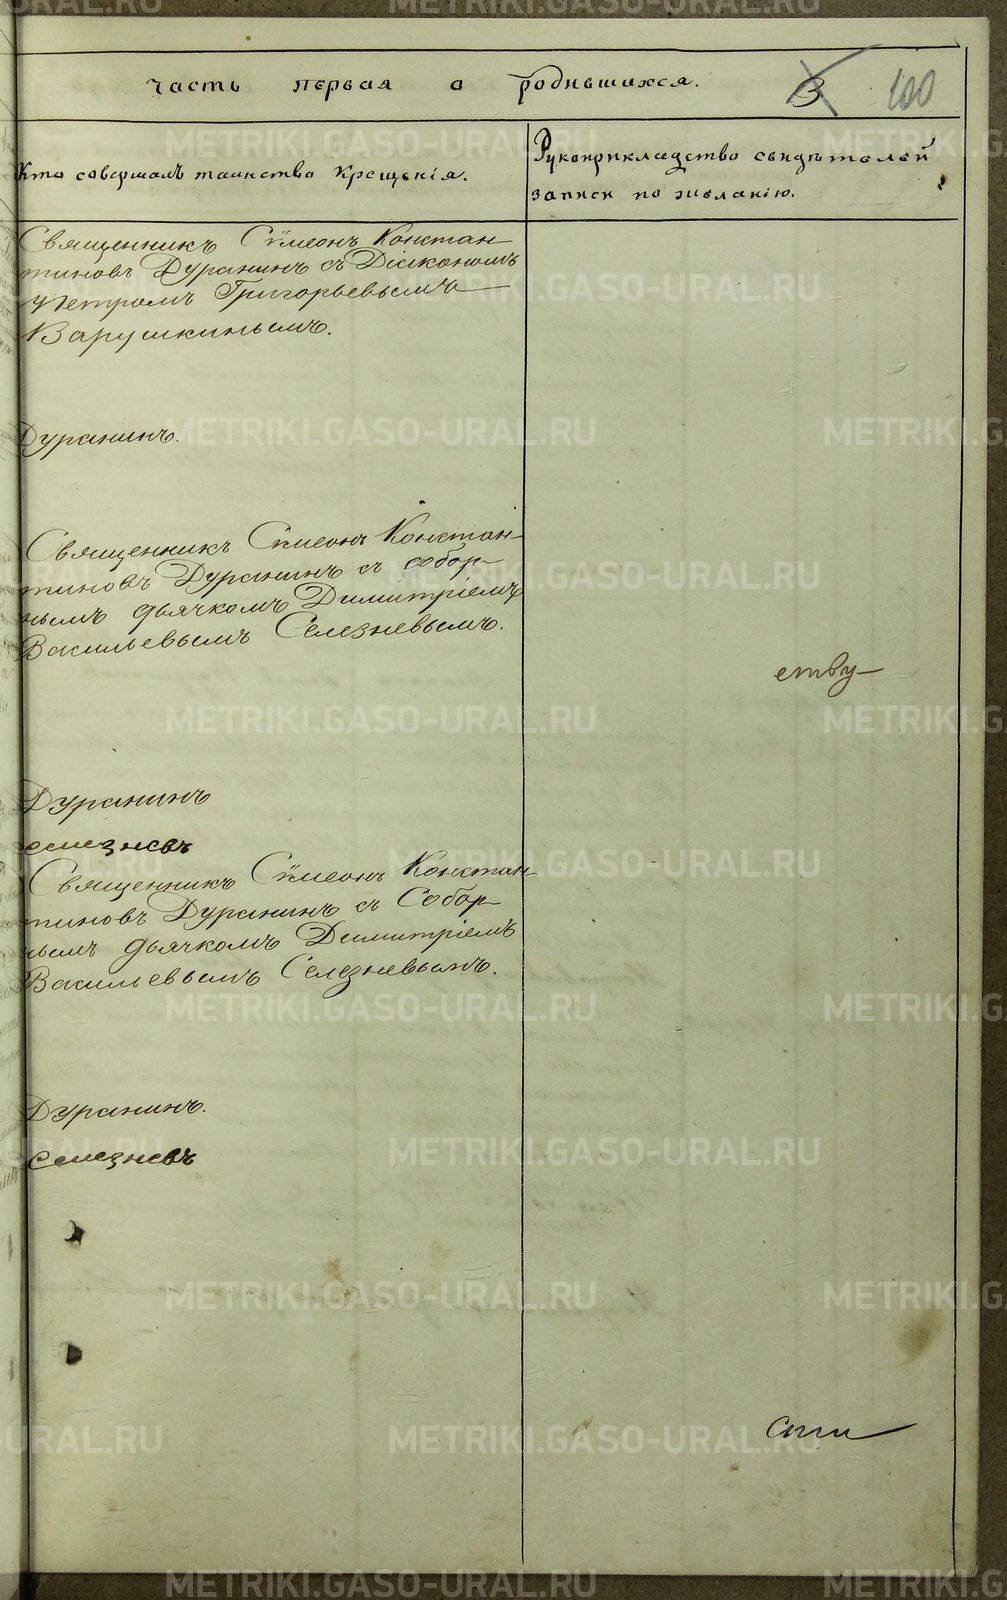 Часть первая о родившихся. 3 100
Кто совершалъ таинство крещенія.
Рукоприкладство свидѣтелей
записи по желанію.
Священникъ Сѵмеонъ Констан-
тиновъ Дуранинъ съ Діакономъ
Петромъ Григорьевымъ
Варушкинымъ.
Дуранинъ.
Священникъ Сѵмеонъ Констан-
тиновъ Дуранинъ съ собор-
нымъ дьячкомъ Димитріемъ
Васильевымъ Селезневымъ.
ству
Дуранинъ
Селезневъ
Священникъ Сѵмеонъ Констан-
тиновъ Дуранинъ съ Собор-
нымъ дьячкомъ Димитріемъ
Васильевымъ Селезневымъ.
Дуранинъ.
Селезневъ
METRIKI.GASO-URAL.RU